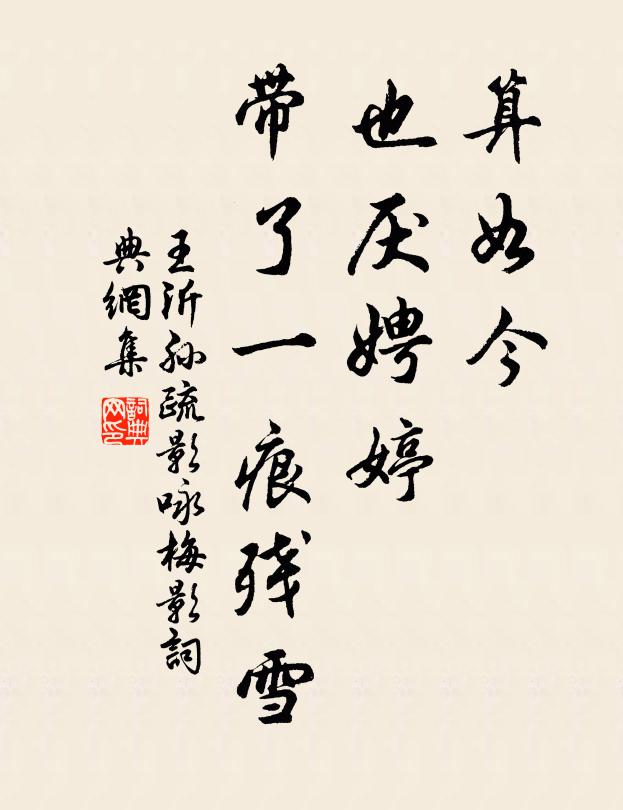 算如今
也厌娉婷
带了一痕残雪
王沂孙疏影咏梅影詞
典網集
詞典网印